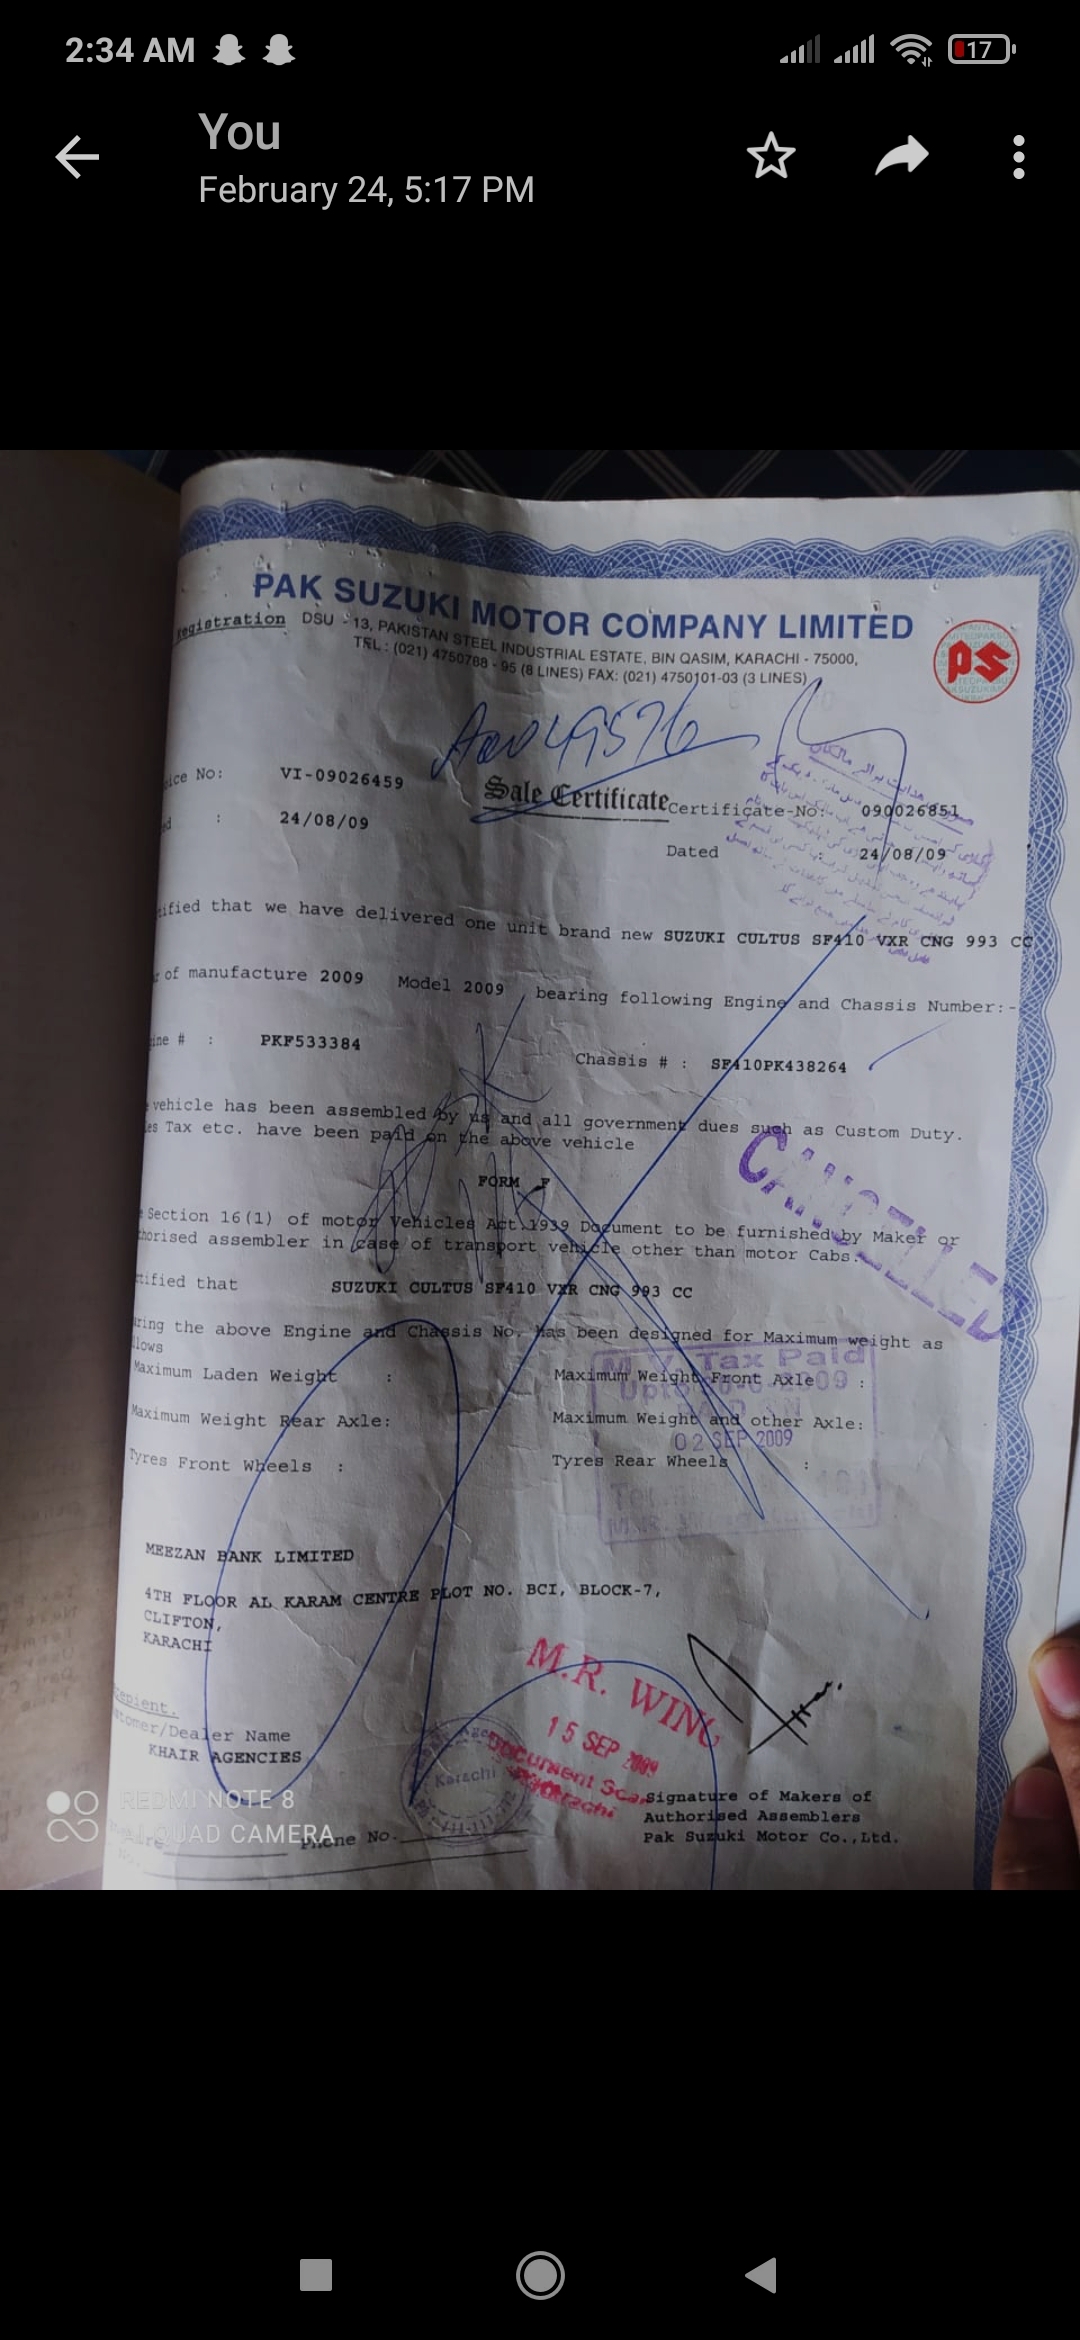 2:34 AM
17
You
February 24, 5:17 PM
PAK SUZUKI MOTOR COMPANY LIMITED
Registration DSU - 13, PAKISTAN STEEL INDUSTRIAL ESTATE, BIN QASIM, KARACHI - 75000,
TEL : (021) 4750788 - 95 (8 LINES) FAX: (021) 4750101-03 (3 LINES)
PS
ice No: VI-09026459
Sale Certificate
Certificate-No: 090026851
: 24/08/09
Dated : 24/08/09
tified that we have delivered one unit brand new SUZUKI CULTUS SF410 VXR CNG 993 CC
of manufacture 2009 Model 2009 bearing following Engine and Chassis Number:-
ine # : PKF533384
Chassis # : SF410PK438264
vehicle has been assembled by us and all government dues such as Custom Duty.
es Tax etc. have been paid on the above vehicle
CANCELLED
FORM F
Section 16(1) of motor Vehicles Act 1939 Document to be furnished by Maker or
horised assembler in case of transport vehicle other than motor Cabs.
tified that SUZUKI CULTUS SF410 VXR CNG 993 CC
ring the above Engine and Chassis No. Has been designed for Maximum weight as
lows
M.V. Tax Paid
Maximum Laden Weight : Maximum Weight Front Axle :
Maximum Weight Rear Axle: Maximum Weight and other Axle:
02 SEP 2009
Tyres Front Wheels : Tyres Rear Wheels :
MEEZAN BANK LIMITED
4TH FLOOR AL KARAM CENTRE PLOT NO. BCI, BLOCK-7,
CLIFTON,
KARACHI
M.R. WING
15 SEP 2009
Document Scan
Karachi
epient.
stomer/Dealer Name
KHAIR AGENCIES
Karachi
Signature of Makers of
Authorised Assemblers
Pak Suzuki Motor Co.,Ltd.
REDMI NOTE 8
AI QUAD CAMERA
Phone No.